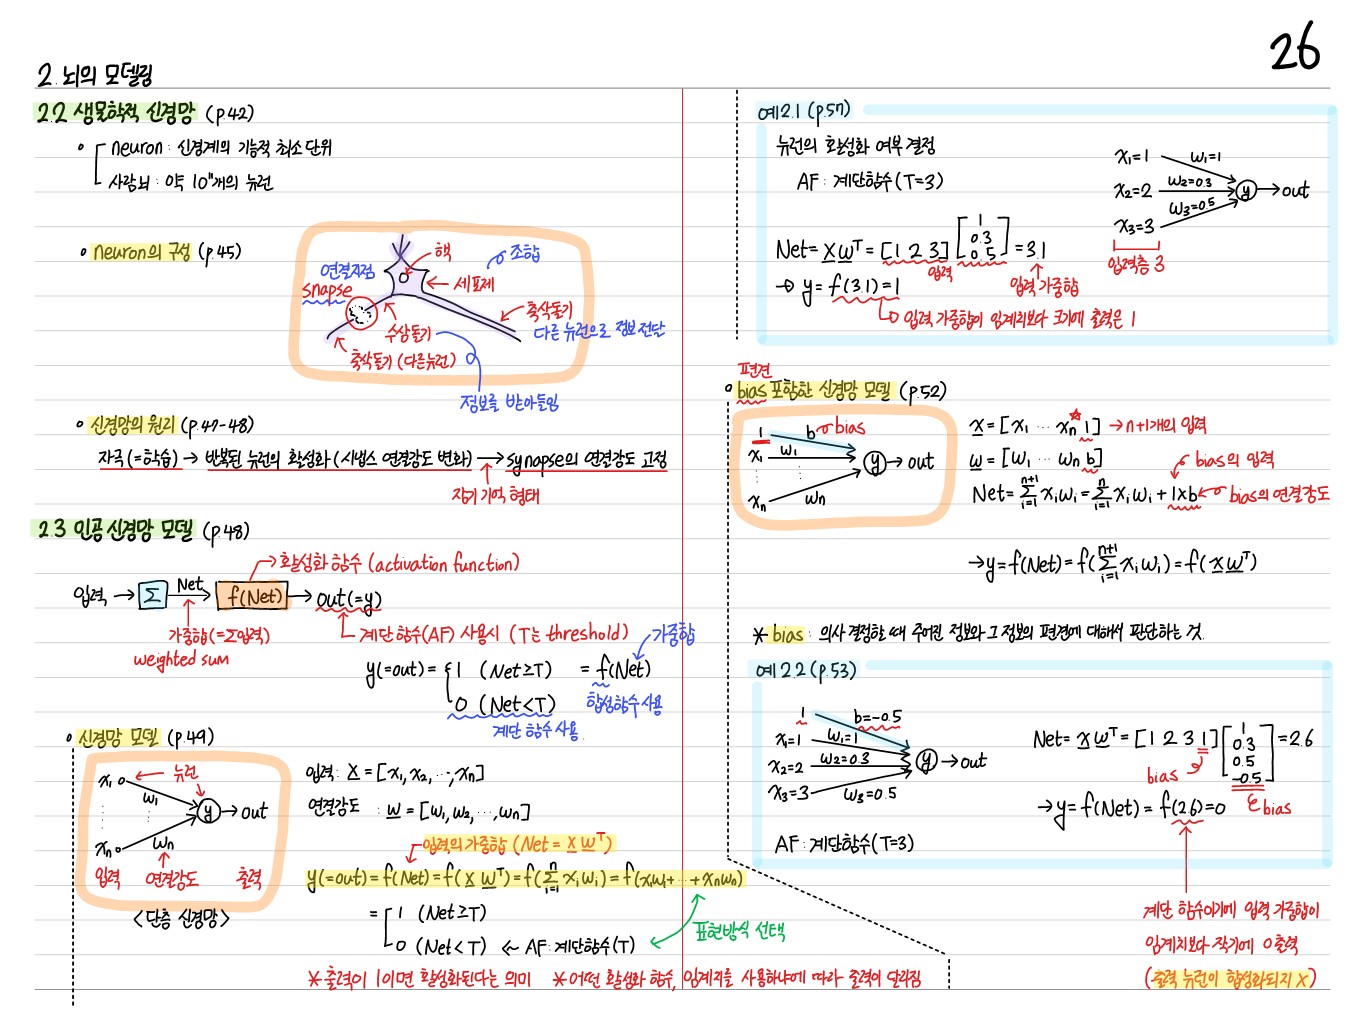 26
2. 뇌의 모델링
2.2 생물학적 신경망 (p.42)
• neuron : 신경계의 기능적 최소 단위
사람 뇌 : 약 10"개의 뉴런
• neuron의 구성 (p.45)
핵
조합
연결지점
snapse
세포체
축삭돌기
다른 뉴런으로 정보 전달
수상돌기
축삭돌기 (다른뉴런)
정보를 받아들임
• 신경망의 원리 (p.47-48)
자극(=학습) → 반복된 뉴런의 활성화 (시냅스 연결강도 변화) → synapse의 연결강도 고정
장기 기억 형태
2.3 인공 신경망 모델 (p.48)
활성화 함수 (activation function)
입력 → Σ Net → f(Net) → out(=y)
가중합(=Σ입력)
weighted sum
계단 함수(AF) 사용시 (T는 threshold)
가중합
y(=out) = { 1 (Net≥T) = f(Net)
0 (Net<T)
합성함수 사용
계단 함수 사용
• 신경망 모델 (p.49)
x₁ 뉴런
w₁
y → out
xn
wn
입력 연결강도 출력
<단층 신경망>
입력 : x = [x₁, x₂, ···, xn]
연결강도 : w = [w₁, w₂, ···, wn]
입력의 가중합 (Net = x wᵀ)
y(=out) = f(Net) = f(x wᵀ) = f(Σ xᵢwᵢ) = f(x₁w₁+ ··· +xnwn)
i=1 n
= 1 (Net≥T)
0 (Net<T) ← AF : 계단함수(T)
표현방식 선택
* 출력이 1이면 활성화된다는 의미 * 어떤 활성화 함수, 임계치를 사용하냐에 따라 출력이 달라짐
예 2.1 (p.57)
뉴런의 활성화 여부 결정
AF : 계단함수 (T=3)
x₁=1 w₁=1
x₂=2 w₂=0.3 y → out
x₃=3 w₃=0.5
입력층 3
Net = x wᵀ = [1 2 3] [1 0.3 0.5] = 3.1
입력
입력 가중합
→ y = f(3.1) = 1
입력 가중합이 임계치보다 크기에 출력은 1
편견
• bias 포함한 신경망 모델 (p.52)
1 b bias
x₁ w₁ y → out
xn wn
x = [x₁ ··· xn 1] → n+1개의 입력
w = [w₁ ··· wn b]
bias의 입력
Net = Σ xᵢwᵢ = Σ xᵢwᵢ + 1×b bias의 연결강도
→ y = f(Net) = f(Σ xᵢwᵢ) = f(x wᵀ)
* bias : 의사 결정할 때 주어진 정보와 그 정보의 편견에 대해서 판단하는 것.
예 2.2 (p.53)
1 b=-0.5
x₁=1 w₁=1
x₂=2 w₂=0.3 y → out
x₃=3 w₃=0.5
AF : 계단함수 (T=3)
Net = x wᵀ = [1 2 3 1] [1 0.3 0.5 -0.5] = 2.6
bias
bias
→ y = f(Net) = f(2.6) = 0
계단 함수이기에 입력 가중합이
임계치보다 작기에 0 출력
(출력 뉴런이 합성화되지 X)